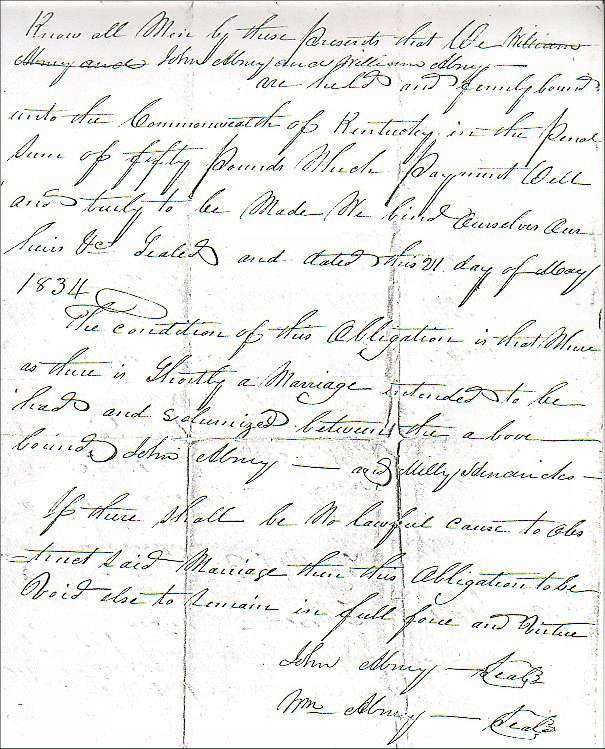 Know all Men by these Presents that We William
Abney and John Abney and William Abney
are held and firmly bound
unto the Commonwealth of Kentucky in the Penal
Sum of fifty Pounds Which Payment Well
and truly to be Made We bind Ourselves Our
heirs &c Sealed and dated this 21 day of May
1834
The condition of this Obligation is that Where
as there is Shortly a Marriage intended to be
had and Solumized between the above
bound John Abney — and Milly —
If there shall be No lawful cause to obs
=truct said Marriage then this Obligation to be
Void else to remain in full force and Virtue
John Abney — Seal
Wm Abney — Seal